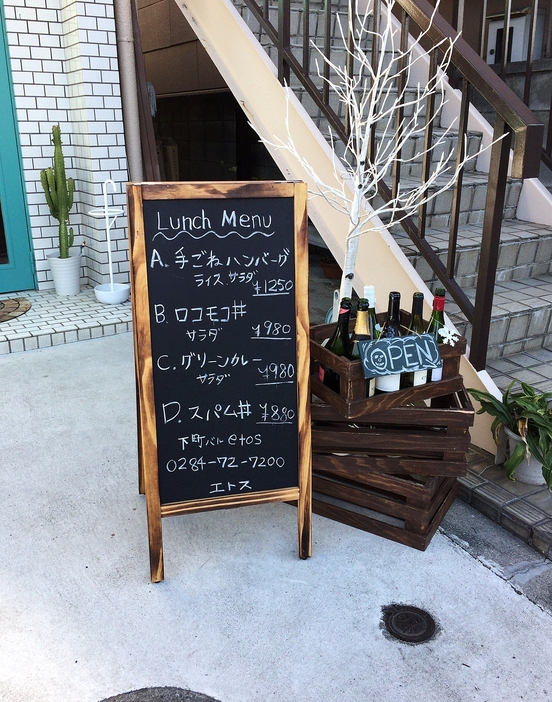 Lunch Menu
A. 手ごねハンバーグ
ライス サラダ
¥1250
B. ロコモコ丼
サラダ
¥980
C. グリーンカレー
サラダ
¥980
D. スパム丼 ¥880
下町バル etos
0284-72-7200
エトス
OPEN